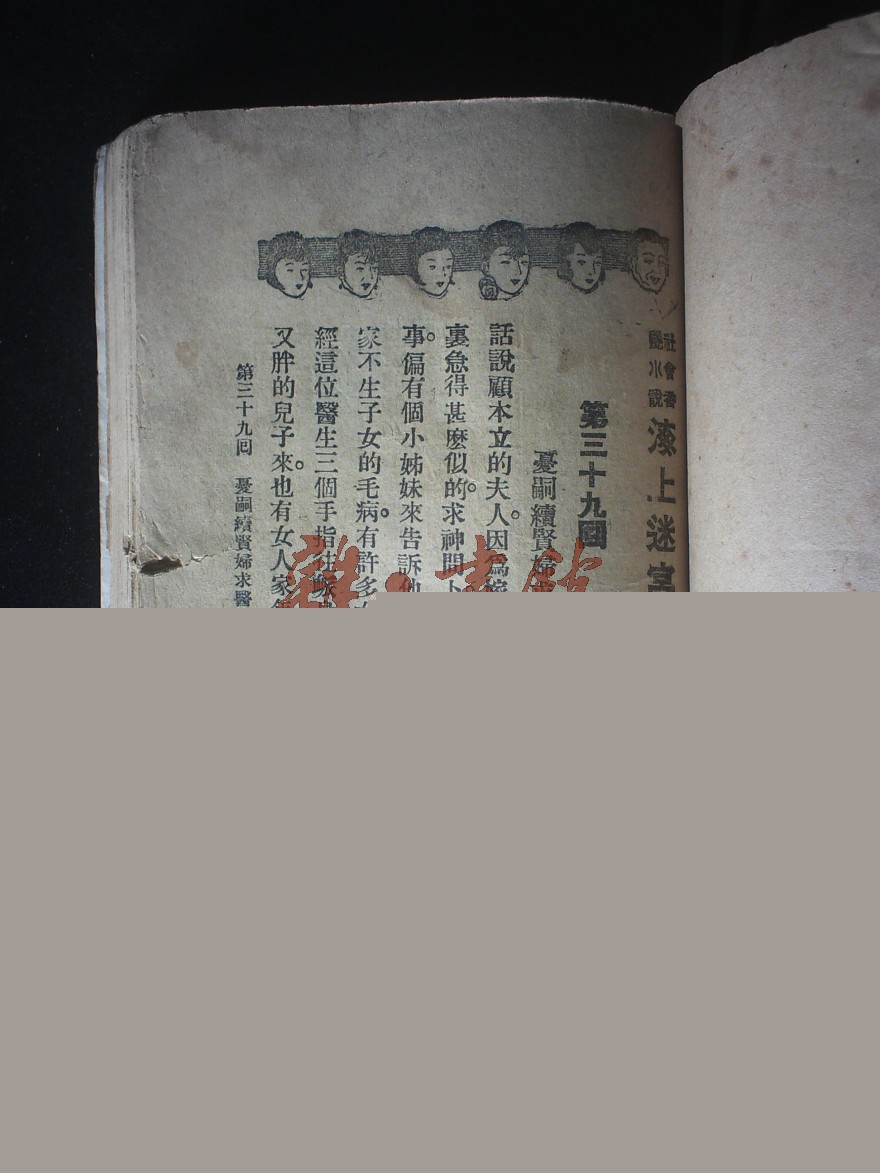 社會香
艷小說
海上迷宮
第三十九囘
憂嗣續賢婦求
話說顧本立的夫人。因爲
裏急得甚麽似的。求神問卜
事。偏有個小姊妹來告訴他
家不生子女的毛病。有許多
經這位醫生三個手指往脈
又胖的兒子來。也有女人家
第三十九囘
憂嗣續賢婦求醫